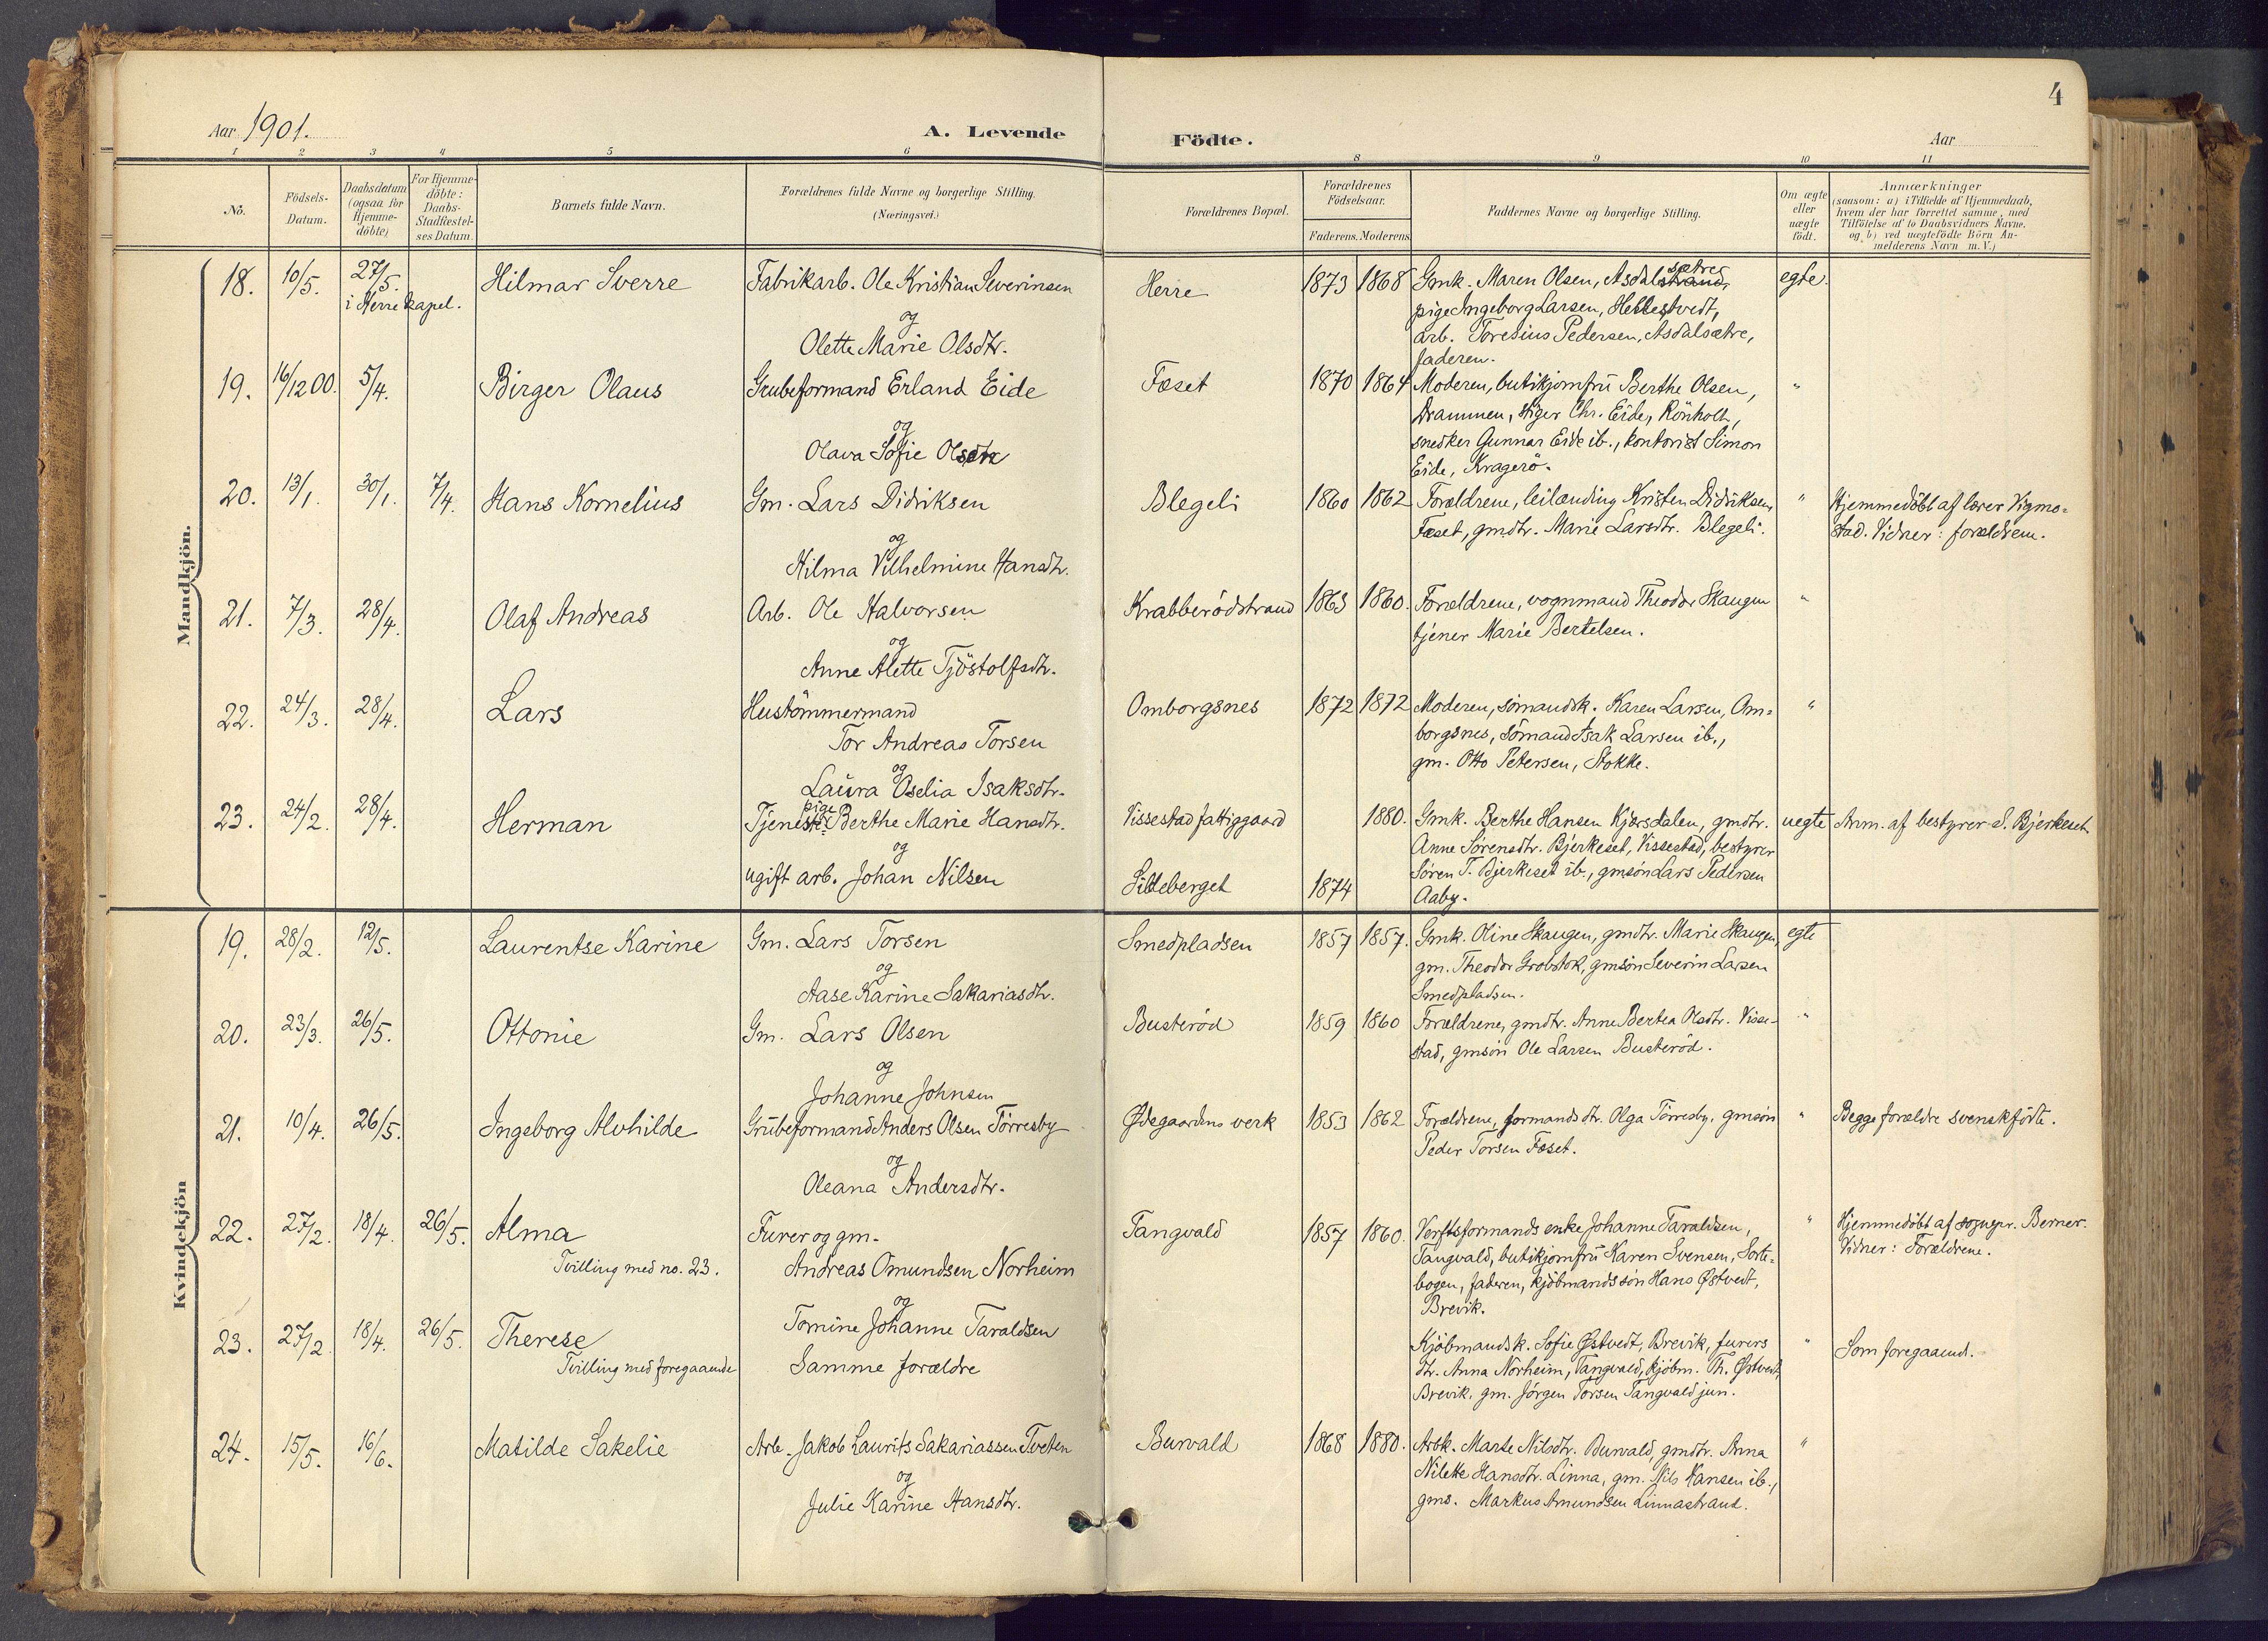 4
Aar 1901.
A. Levende Födte.
Aar
1 2 3 4 5 6 8 9 10 11
No.
Födsels-Datum.
Daabsdatum (ogsaa for Hjemme-döbte)
For Hjemme-döbte: Daabs-Stadfæstel-ses Datum.
Barnets fulde Navn.
Forældrenes fulde Navne og borgerlige Stilling. (Næringsvei.)
Forældrenes Bopæl.
Forældrenes Födselsaar.
Faderens. Moderens.
Faddernes Navne og borgerlige Stilling.
Om ægte eller uægte födt.
Anmærkninger
(saasom: a) i Tilfælde af Hjemmedaab,
hvem der har forrettet samme, med
Tilföielse af to Daabsvidners Navne.
og b) ved uægtefödte Börn An-
melderens Navn m. V.)
Mandkjön.
18. 10/5. 27/5. i Herre kapel. Hilmar Sverre
Fabrikarb. Ole Kristian Severinsen
og
Olette Marie Olsdtr.
Herre 1873 1868
Gmk. Maren Olsen, Asdalsætres
pige Ingeborg Larsen, Hellestvedt,
arb. Toresius Pedersen, Asdalsætre,
faderen.
egte.
19. 16/12 00. 5/4. Birger Olaus
Grubeformand Erland Eide
og
Olava Sofie Olsdtr
Foset 1870 1864
Moderen, butikjomfru Berthe Olsen,
Drammen, stiger Chr. Eide, Rönholt,
snedker Gunnar Eide ib., kontorist Simon
Eide, Kragerö.
"
20. 13/1. 30/1. 7/4. Hans Kornelius
Gm. Lars Didriksen
og
Hilma Vilhelmine Hansdtr.
Blegeli 1860 1862
Forældrene, leilænding Kristen Didriksen,
Foset, gmdtr. Marie Larsdtr. Blegeli.
"
Hjemmedöbt af lærer Vigmo-
stad. Vidner: forældrene.
21. 7/3. 28/4. Olaf Andreas
Arb. Ole Halvorsen
og
Anne Alette Tjöstolfsdtr.
Krabberödstrand 1863 1860.
Forældrene, vognmand Theodor Skaugen
tjener Marie Bertelsen.
"
22. 24/3. 28/4. Lars
Hustömmermand
Tor Andreas Torsen
og
Laura Oselia Isaksdtr.
Omborgsnes 1872 1872
Moderen, sömandsk. Karen Larsen, Om-
borgsnes, sömand Isak Larsen ib.,
gm. Otto Petersen, Stokke.
"
23. 24/2. 28/4. Herman
Tjenestepige Berthe Marie Hansdtr.
og
ugift arb. Johan Nilsen
Vissestad fattiggaard 1880.
Sildeberget 1874
Gmk. Berthe Hansen Kjörsdalen, gmdtr.
Anne Sørensdtr. Bjerkeset, Vissestad, bestyrer
Søren T. Bjerkeset ib., gmsön Lars Pedersen
Aaby.
uegte
Anm. af bestyrer S. Bjerkeset
Kvindekjön
19. 28/2. 12/5. Laurentse Karine
Gm. Lars Torsen
og
Aase Karine Sakariasdtr.
Smedpladsen 1857 1857.
Gmk. Oline Skaugen, gmdtr. Marie Skaugen,
gm. Theodor Grobstok, gmsön Severin Larsen
Smedpladsen.
egte
20. 23/3. 26/5. Ottonie
Gm. Lars Olsen
og
Johanne Johnsen
Busteröd 1859 1860
Forældrene, gmdtr. Anne Bertea Olsdtr. Visse-
stad, gmsön Ole Larsen Busteröd.
"
21. 10/4. 26/5. Ingeborg Alvhilde
Grubeformand Anders Olsen Törresby
og
Oleana Andersdtr.
Ødegaardens verk 1853 1862
Forældrene, formandsdtr. Olga Törresby, gmsön
Peder Torsen Foset.
"
Begge forældre svenskfödte.
22. 27/2. 18/4. 26/5. Alma
Tvilling med no. 23.
Furer og gm.
Andreas Omundsen Norheim
og
Tomine Johanne Taraldsen
Tangvald 1857 1860.
Verftsformands enke Johanne Taraldsen,
Tangvald, butikjomfru Karen Svensen, Sorte-
bogen, faderen, kjöbmandssön Hans Østvedt,
Brevik.
"
Hjemmedöbt af sognepr. Berner.
Vidner: Forældrene.
23. 27/2. 18/4. 26/5. Therese
Tvilling med foregaaende
Samme forældre
Kjöbmandsk. Sofie Østvedt, Brevik, furers
dtr. Anna Norheim, Tangvald, kjöbm. Th. Østvedt,
Brevik. gm. Jörgen Torsen Tangvald jun.
"
Som foregaaende.
24. 15/5. 16/6. Matilde Sakelie
Arb. Jakob Laurits Sakariassen Tveten
og
Julie Karine Hansdtr.
Burvald 1868 1880.
Arbk. Marte Nilsdtr. Burvald, gmdtr. Anna
Nilette Hansdtr. Linna, gm. Nils Hansen ib.,
gms. Markus Amundsen Linnastrand.
"